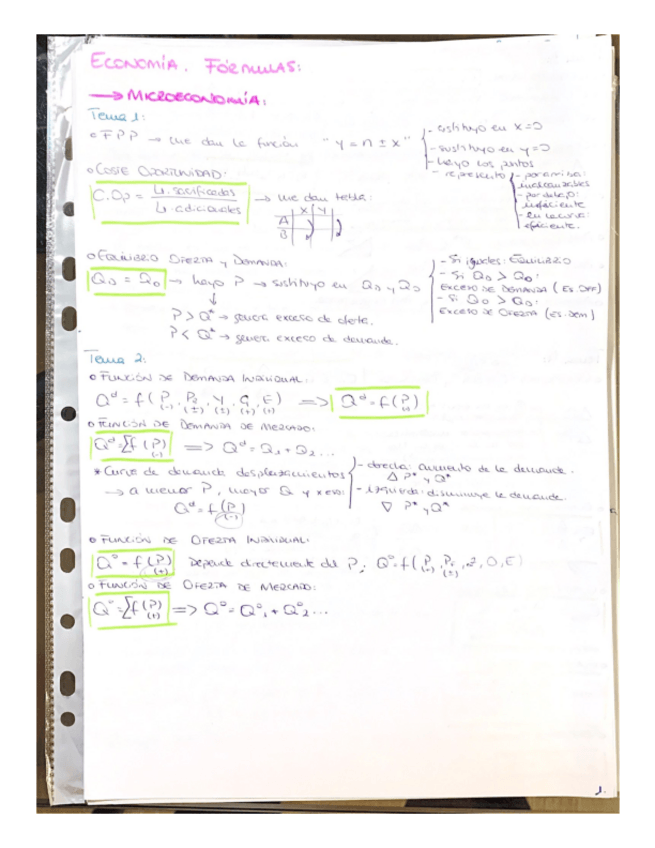 ECONOMÍA. FÓRMULAS:
→ MICROECONOMÍA:
Tema 1:
• FPP → me dan la función "y = n ± x"
- sustituyo en x=0
- sustituyo en y=0
- hallo los puntos
- represento
- por arriba: inalcanzables
- por debajo: ineficiente
- en la curva: eficiente.
• COSTE OPORTUNIDAD:
C.Op = U. sacrificadas / U. adicionales → me dan tabla:
X Y
A
B
• EQUILIBRIO OFERTA y DEMANDA:
QD = QO → hallo P → sustituyo en QD y QO
- Si iguales: EQUILIBRIO
- Si QD > QO:
EXCESO DE DEMANDA
- Si QO > QD:
EXCESO DE OFERTA
P > Q* → genera exceso de oferta.
P < Q* → genera exceso de demanda.
Tema 2:
• FUNCIÓN DE DEMANDA INDIVIDUAL:
⇒ Qd = f(P) (-)
• FUNCIÓN DE DEMANDA DE MERCADO:
Qd = Σf(P) (-) ⇒ Qd = Q1 + Q2...
* Curva de demanda desplazamientos
- derecha: aumento de la demanda.
△ P* y Q*
- izquierda: disminuye la demanda.
▽ P* y Q*
→ a menor P, mayor Q y
Qd = f(P) (-)
• FUNCIÓN DE OFERTA INDIVIDUAL:
Qo = f(P) (+) Depende directamente del P;
• FUNCIÓN DE OFERTA DE MERCADO:
Qo = Σf(P) (+) ⇒ Qo = Qo1 + Qo2...
1.